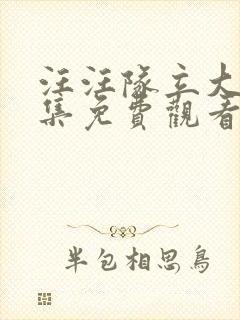 汪汪隊立大
集免費觀看
半包相思鳥